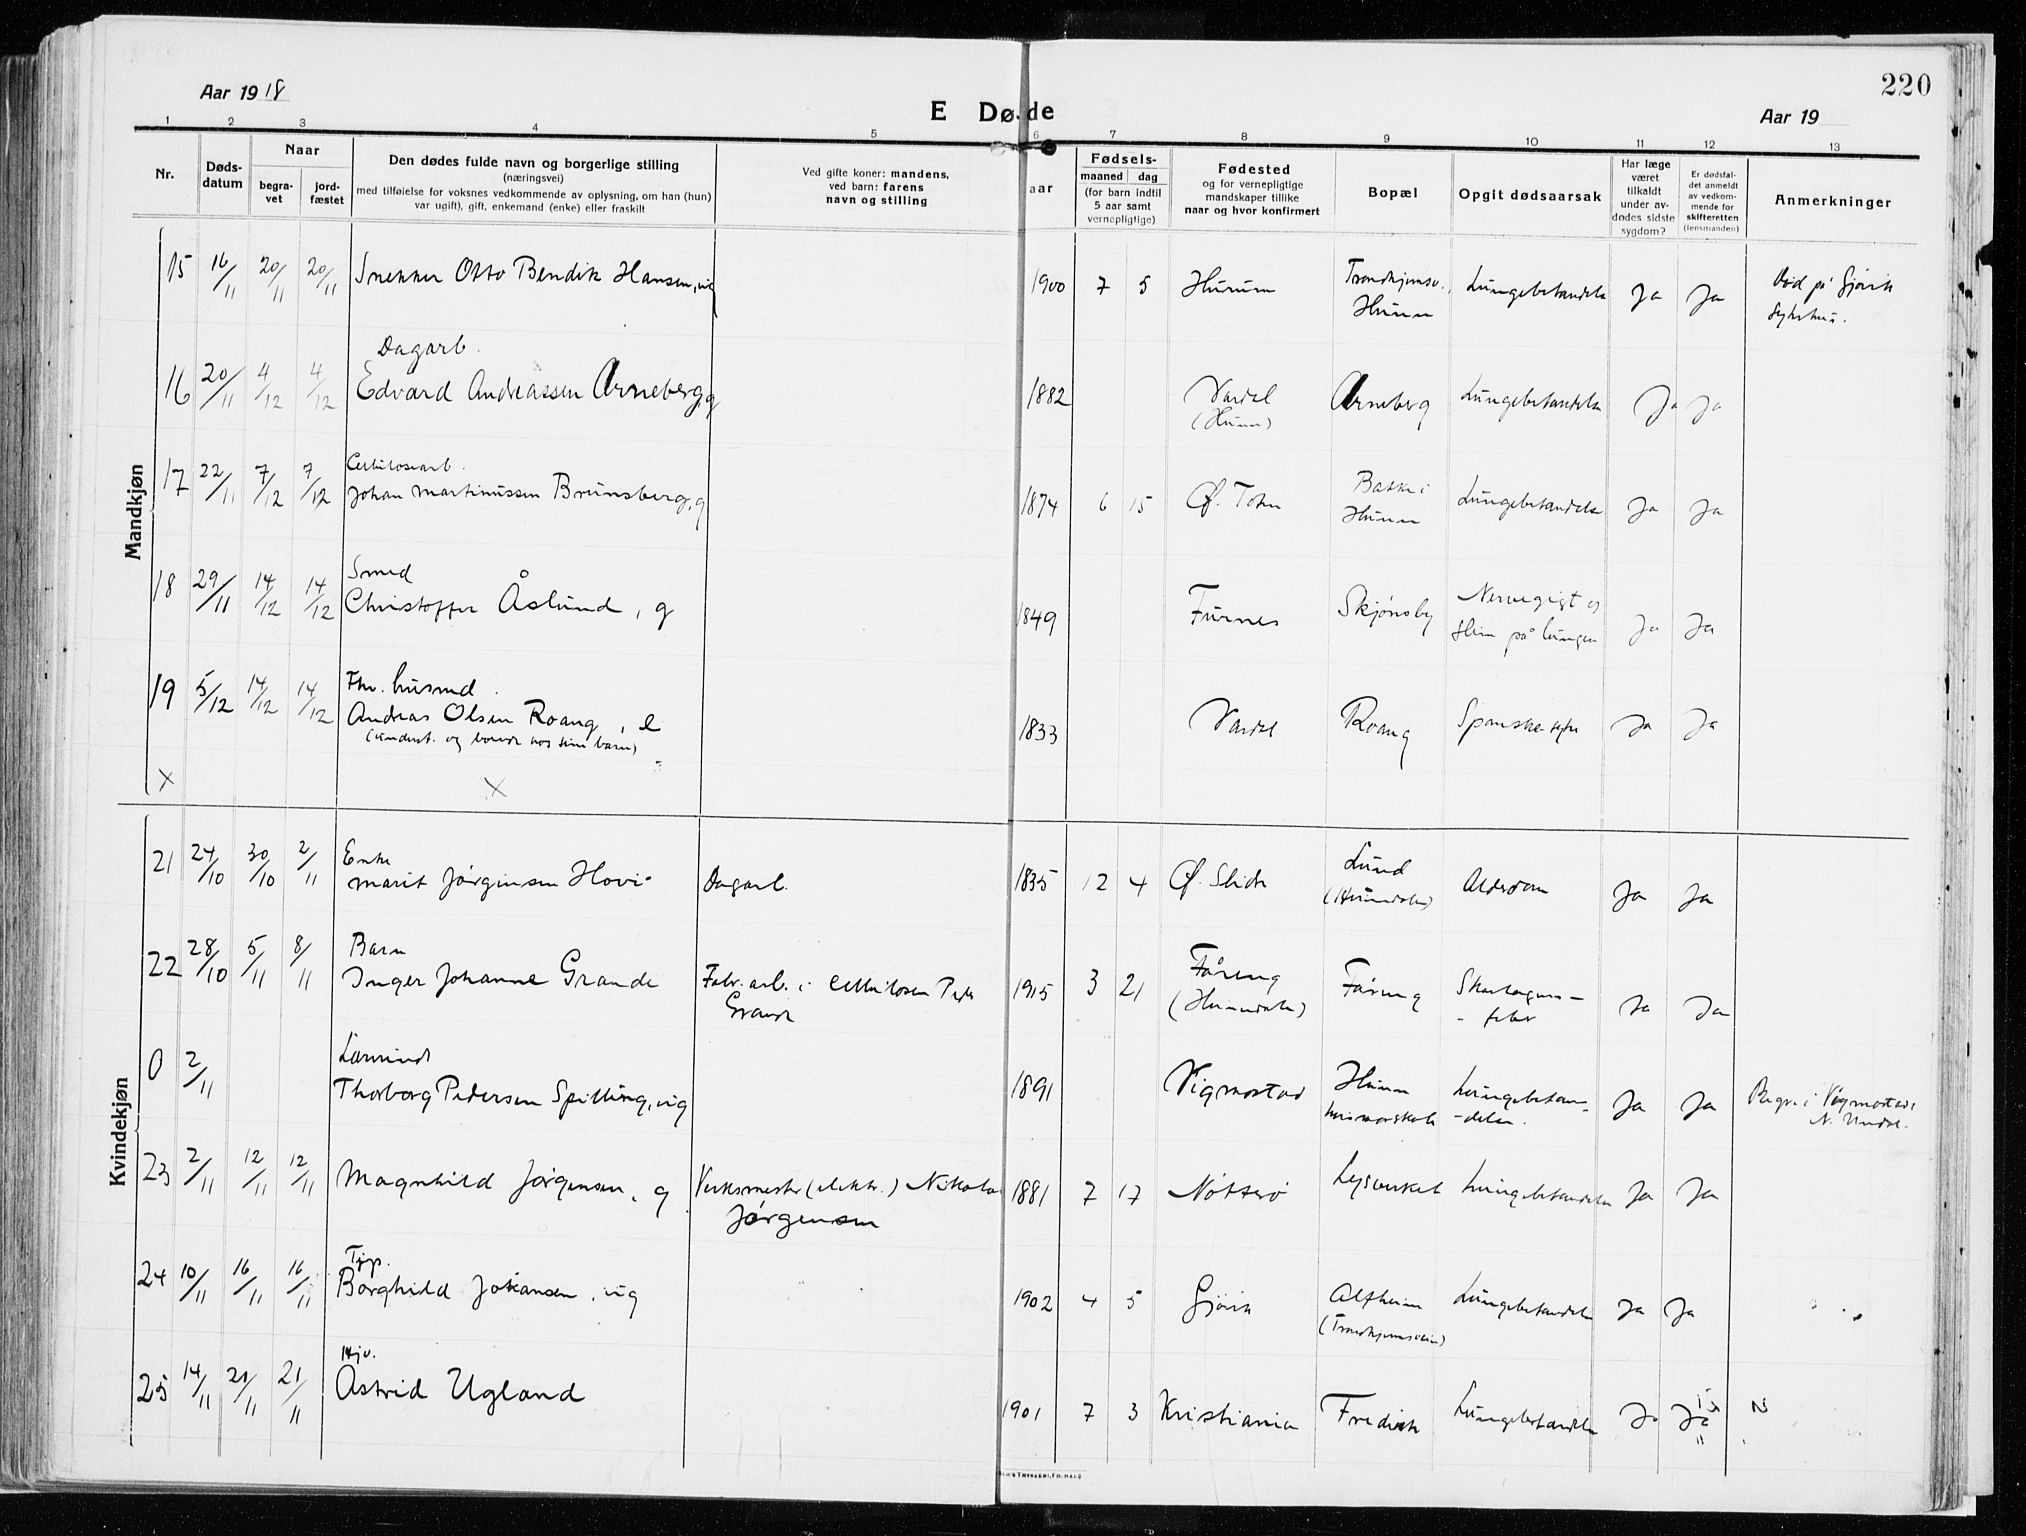 220
Aar 1918
E Døde
Aar 19
1 2 3 4 5 6 7 8 9 10 11 12 13
Nr.
Døds-
datum
Naar
begra-
vet
jord-
fæstet
Den dødes fulde navn og borgerlige stilling
(næringsvei)
med tilføielse for voksnes vedkommende av oplysning, om han (hun)
var ugift), gift, enkemand (enke) eller fraskilt
Ved gifte koner: mandens,
ved barn: farens
navn og stilling
aar
Fødsels-
maaned dag
(for barn indtil
5 aar samt
vernepligtige)
Fødested
og for vernepligtige
mandskaper tillike
naar og hvor konfirmert
Bopæl
Opgit dødsaarsak
Har læge
været
tilkaldt
under av-
dødes sidste
sygdom?
Er dødsfal-
det anmeldt
av vedkom-
mende for
skifteretten
(lensmanden)
Anmerkninger
Mandkjøn
15 16/11 20/11 20/11 Snekker Otto Bendik Hansen, ug
1900 7 5 Hurum Trondhjemsv. Hunn Lungebetændelse Ja Ja Død på Gjøvik
Sykehus.
Dagarb.
16 20/11 4/12 4/12 Edvard Andreassen Arneberg, g
1882 Vardal
(Hunn) Arneberg Lungebetændelse Ja Ja
Cellulosearb.
17 22/11 7/12 7/12 Johan Martinussen Brunsberg, g
1874 6 15 Ø. Toten Bakke i
Hunn Lungebetændelse Ja Ja
Smed
18 29/11 14/12 14/12 Christoffer Åslund, g
1849 Furnes Skjønsby Nervegigt og
slim på lungen Ja Ja
Fhv. husmd.
19 5/12 14/12 14/12 Andreas Olsen Roang, e
(underst. og boende hos sine barn)
1833 Vardal Roang Spanske-syke Ja Ja
x x
Kvindekjøn
Enke
21 24/10 30/10 2/11 Marit Jørgensen Hovi Dagarb.
1835 12 4 Ø. Slidre Lund
(Hunndalen) Alderdom Ja Ja
Barn
22 28/10 5/11 8/11 Inger Johanne Grande Fabr. arb. i Cellulosen Peder
Grande
1915 3 21 Fåreng
(Hunndalen) Fåreng Skarlagens-
- feber Ja Ja
Lærerinde
0 2/11 Thorborg Pedersen Spilling, ug
1891 Vigmostad Hunn
husmorskole Lungebetæn-
-delse. Ja Ja Begr. i Vigmostad i
N. Undal.
23 2/11 12/11 12/11 Magnhild Jørgensen, g Verksmester (elektr.) Nikolai
Jørgensen
1881 7 17 Nøtterø Lysverket Lungebetændelse Ja Ja
Tjp.
24 10/11 16/11 16/11 Borghild Johansen, ug
1902 4 5 Gjøvik Alfheim
(Trondhjemsveien) Lungebetændelse Ja Ja
Hjv.
25 14/11 21/11 21/11 Astrid Ugland
1901 7 3 Kristiania Fredvik Lungebetændelse Ja Ja